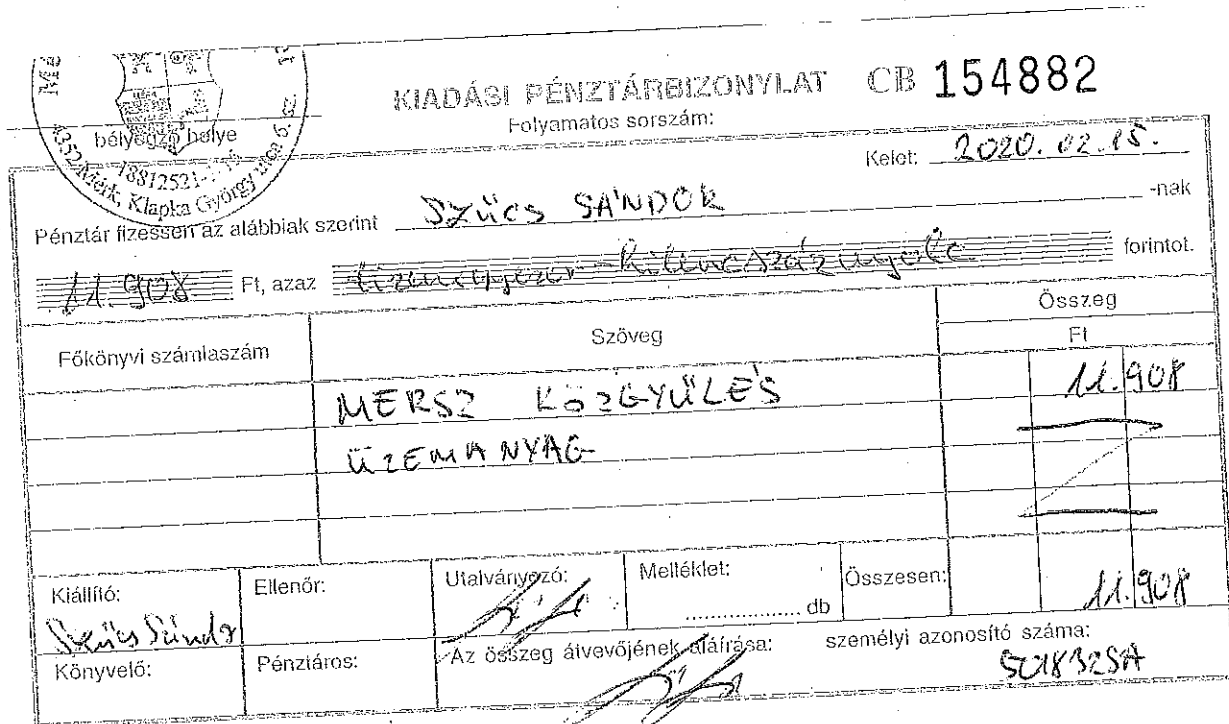 bélyegző helye
18812521-
4352 Mérk, Klapka György utca 6. sz.
KIADÁSI PÉNZTÁRBIZONYLAT CB 154882
Folyamatos sorszám:
Kelet: 2020. 02. 15.
Pénztár fizessen az alábbiak szerint SZŰCS SÁNDOR -nak
11.908 Ft, azaz tizenegyezer-kilencszáznyolc forintot.
Főkönyvi számlaszám Szöveg Összeg
Ft
MERSZ KÖZGYŰLÉS 11.908
ÜZEMANYAG
Kiállító: Ellenőr: Utalványozó: Melléklet: Összesen:
Szűcs Sándor ................ db 11.908
Könyvelő: Pénztáros: Az összeg átvevőjének aláírása: személyi azonosító száma: